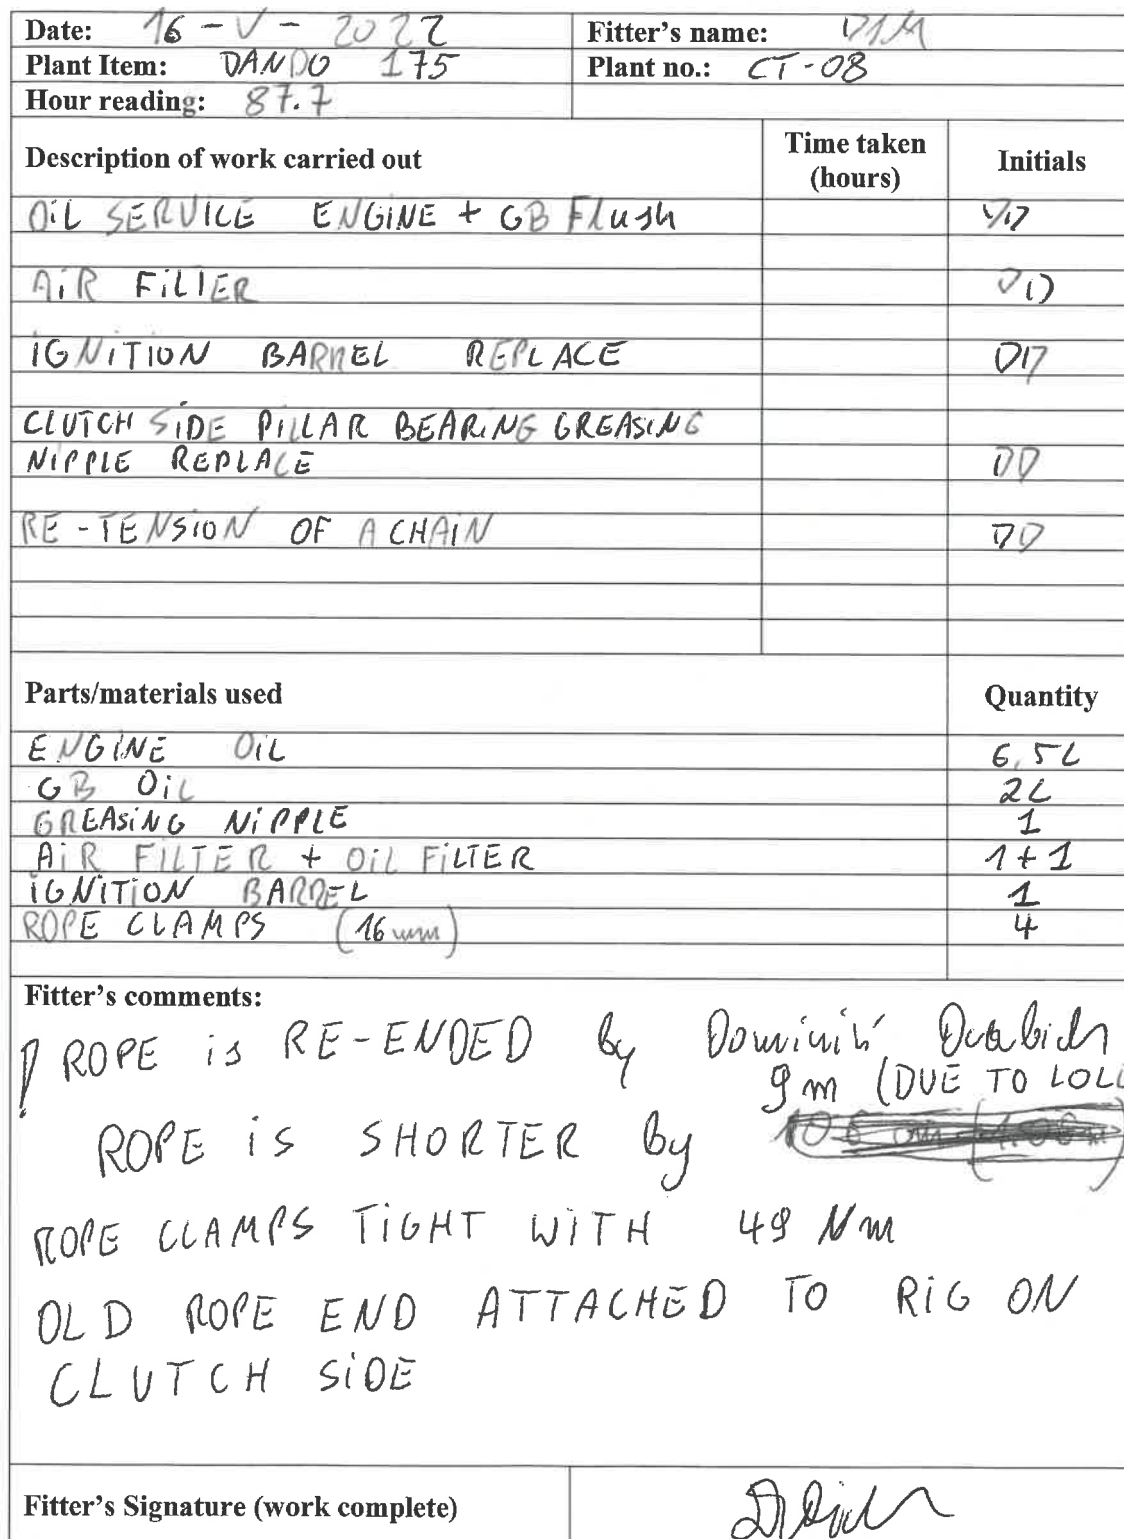 Date: 16 - V - 2022 Fitter's name:
Plant Item: DANDO 175 Plant no.: CT-08
Hour reading: 87.7
Description of work carried out Time taken (hours) Initials
OiL SERVICE ENGINE + GB Flush
AiR FiLTER
iGNiTION BARREL REPLACE
CLUTCH SiDE PiLLAR BEARiNG GREASiNG
NiPPLE REPLACE DD
RE-TENSiON OF A CHAiN DD
Parts/materials used Quantity
ENGiNE OiL 6,5L
GB OiL 2L
GREASiNG NiPPLE 1
AiR FILTER + OiL FiLTER 1+1
iGNiTiON BARREL 1
ROPE CLAMPS (16mm) 4
Fitter's comments:
! ROPE is RE-ENDED by Dominik
9m (DUE TO
ROPE iS SHORTER by
ROPE CLAMPS TiGHT WiTH 49 Nm
OLD ROPE END ATTACHED TO RiG ON
CLUTCH SiDE
Fitter's Signature (work complete)